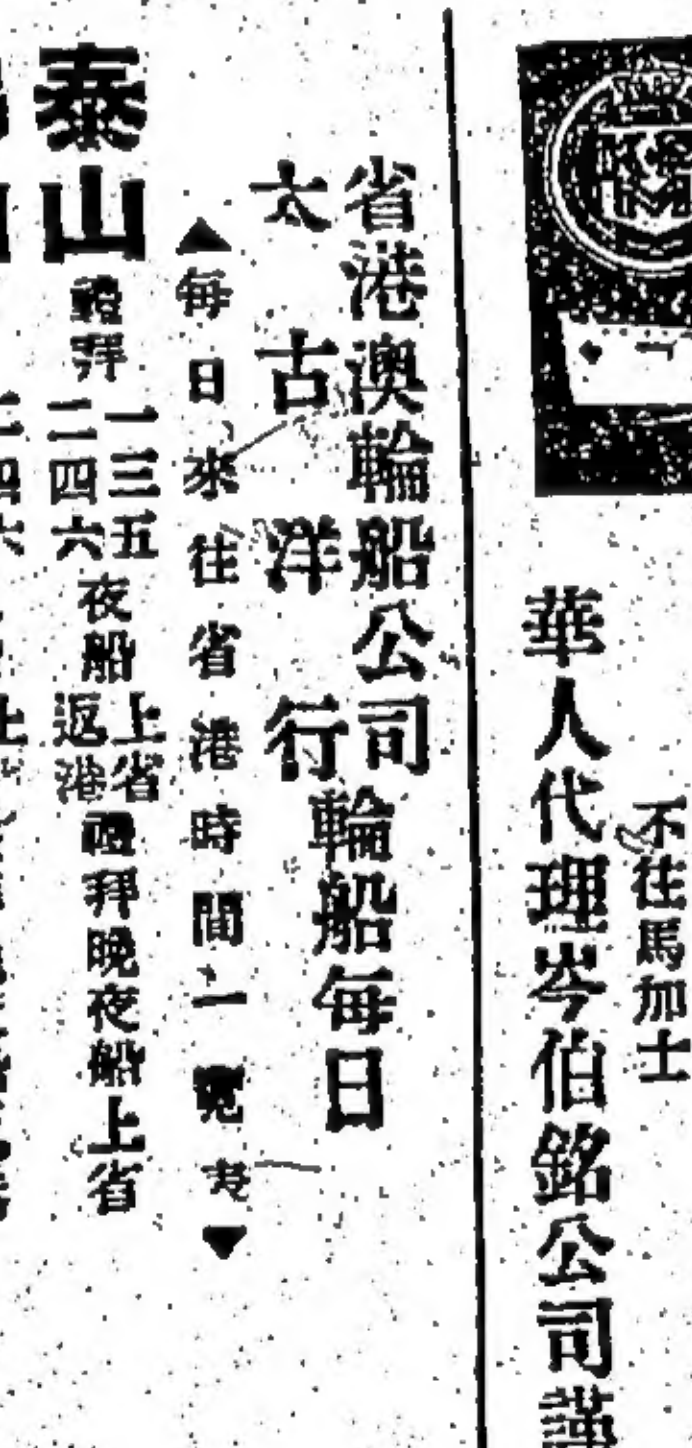 不往馬加士
華人代理岑伯銘公司謹
省港澳輪船公司
太古洋行
輪船每日
▲每日來往省港時間一覽表▼
泰山 禮拜 一三五 二四六 夜船 上省 返港 禮拜晚夜船上省
二四六